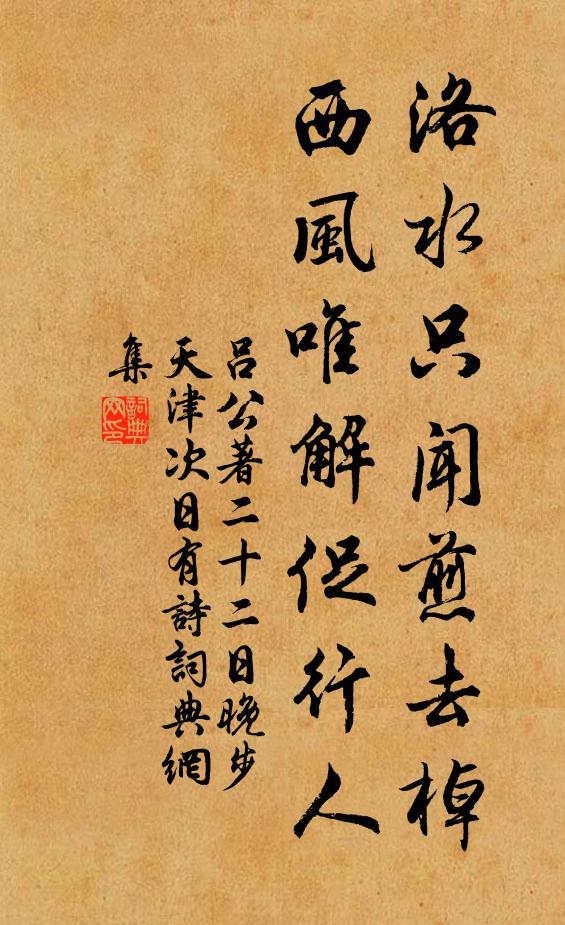 洛水只闻煎去棹
西風唯解促行人
吕公著二十二日晚步
天津次日有詩詞典網
集
詞典網印